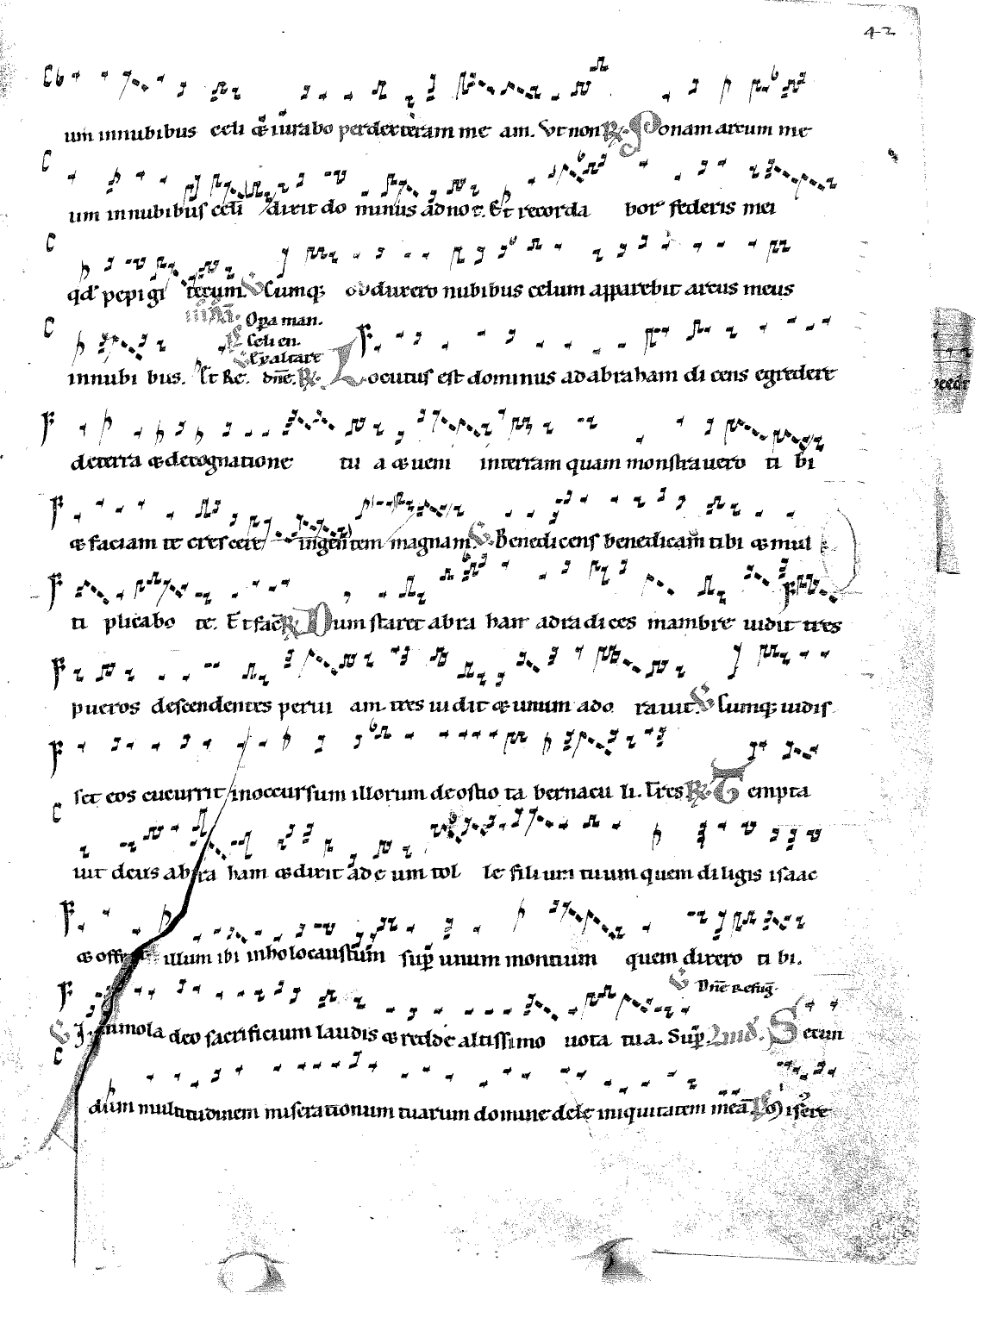 42
um innubibus celi & iurabo per dexteram me am. Vt non R. Ponam arcum me
um innubibus celi dixit do minus ad noe. Et recorda bor federis mei
qd pepigi tecum. V Cumq; obduxero nubibus celum apparebit arcus meus
Opera man.
Celi en.
Exaltare
innubi bus. Et Re. dne. R. Locutus est dominus ad abraham di cens egredere
deterra & decognatione tu a & ueni interram quam monstrauero ti bi
& faciam te crescere ingentem magnam. V Benedicens benedicam tibi & mul
ti plicabo te. Et fac R. Dum staret abra ham adradi ces mambre uidit tres
pueros descendentes perui am. tres uidit & unum ado rauit. V Cumq; uidis
set eos cucurrit inoccursum illorum de ostio ta bernacu li. Tres R. Tempta
uit deus abra ham & dixit ad e um tol le filium tuum quem diligis isaac
& offer illum ibi inholocaustum sup unum montium quem dixero ti bi.
Dne refug.
V Immola deo sacrificium laudis & redde altissimo uota tua. Sup. Secun
dum multitudinem miserationum tuarum domine dele iniquitatem mea. Ps Misere